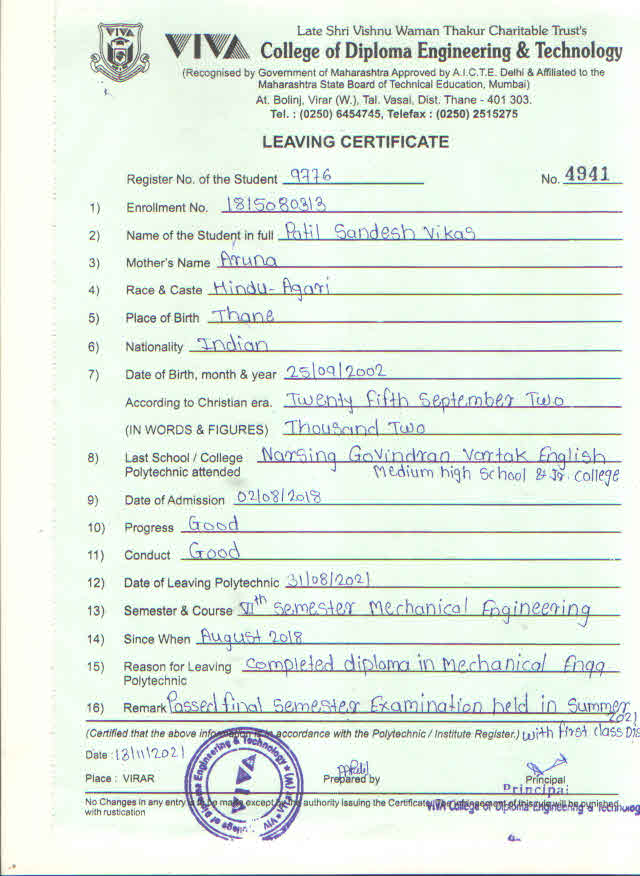 Late Shri Vishnu Waman Thakur Charitable Trust's
VIVA College of Diploma Engineering & Technology
(Recognised by Government of Maharashtra Approved by A.I.C.T.E. Delhi & Affiliated to the
Maharashtra State Board of Technical Education, Mumbai)
At. Bolinj, Virar (W.), Tal. Vasai, Dist. Thane - 401 303.
Tel. : (0250) 6454745, Telefax : (0250) 2515275
LEAVING CERTIFICATE
Register No. of the Student 9776 No. 4941
1) Enrollment No. 1815080313
2) Name of the Student in full Patil Sandesh Vikas
3) Mother's Name Aruna
4) Race & Caste Hindu-Agari
5) Place of Birth Thane
6) Nationality Indian
7) Date of Birth, month & year 25/09/2002
According to Christian era. Twenty Fifth September Two
(IN WORDS & FIGURES) Thousand Two
8) Last School / College Narsing Govindrao Vartak English
Polytechnic attended Medium high School & Jr. College
9) Date of Admission 02/08/2018
10) Progress Good
11) Conduct Good
12) Date of Leaving Polytechnic 31/08/2021
13) Semester & Course VIth Semester Mechanical Engineering
14) Since When August 2018
15) Reason for Leaving Completed diploma in Mechanical Engg
Polytechnic
16) Remark Passed final Semester Examination held in Summer
2021
(Certified that the above information is in accordance with the Polytechnic / Institute Register.) with first class Dis
Date : 18/11/2021
Place : VIRAR Prepared by Principal
Principal
No Changes in any entry is to be made except by the authority issuing the Certificate
with rustication
VIVA College of Diploma Engineering & Technology